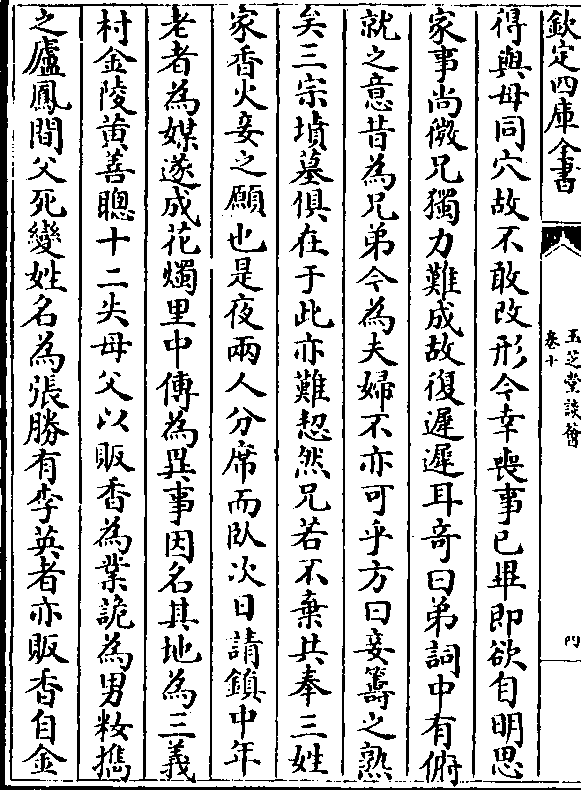 欽定四庫全書
玉芝堂談薈
卷十
四
得與母同穴故不敢改形今幸喪事已畢即欲自明思
家事尚微兄獨力難成故復遲遲耳奇曰弟詞中有俯
就之意昔為兄弟今為夫婦不亦可乎方曰妾籌之熟
矣三宗墳墓俱在于此亦難恝然兄若不棄共奉三姓
家香火妾之願也是夜兩人分席而臥次日請鎮中年
老者為媒遂成花燭里中傳為異事因名其地為三義
村金陵黄善聰十二失母父以販香為業詭為男粧擕
之廬鳳間父死變姓名為張勝有李英者亦販香自金